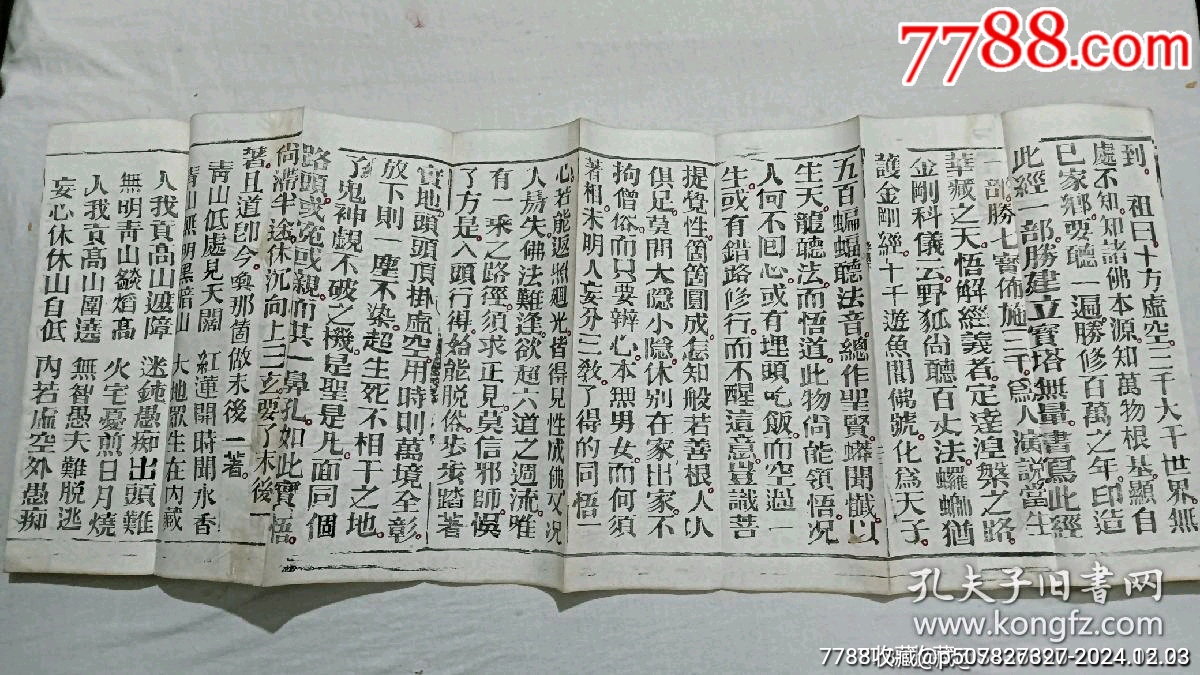 到 祖曰十方虛空三千大千世界無
處不知知諸佛本源知萬物根基顯自
已家鄉或聽一遍勝修百萬之年印造
此經一部勝建立寶塔無量書寫此經
一部勝七寶佈施三千爲人演說當生
華藏之天悟解經義者定達涅槃之路
金剛科儀云野狐尚聽百丈法螺螄猶
護金剛經十千遊魚聞佛號化爲天子
五百蝙蝠聽法音總作聖賢蟒聞懺以
生天龍聽法而悟道此物尚能領悟况
人何不囘心或有埋頭吃飯而空過一
生或有錯路修行而不醒這意豈識菩
提覺性箇箇圓成怎知般若善根人人
俱足莫問大隱小隱休别在家出家不
拘僧俗而只要辦心本無男女而何須
著相未明人妄分三教了得的同悟一
心若能返照廻光皆得見性成佛又况
人易失佛法難逢欲超六道之週流唯
有一乘之路徑須求正見莫信邪師悞
了方是入頭行得始能脫俗步步踏著
實地頭頭頂掛虛空用時則萬境全彰
放下則一塵不染起生死不相干之地
了鬼神覷不破之機是聖是凡面同個
路頭或寃或親而共一鼻孔如此實悟
尚滯半途休沉向上三玄要了末後一
著且道卽今喚那箇做末後一著
青山低處見天闊 紅蓮開時聞水香
青山無明黑暗山 大地衆生在內藏
人我貢高山遮障 迷鈍愚痴出頭難
無明靑山燄焰高 火宅憂煎日月燒
人我貢高山圍遶 無智愚夫難脫逃
妄心休休山自低 內若虛空外愚痴
7788.com
孔夫子旧书网
www.kongfz.com
7788收藏@p507827327-2024.12.03